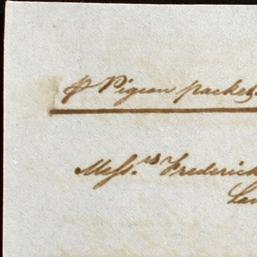 ℘ Pigeon packet
Mess.rs Frederick